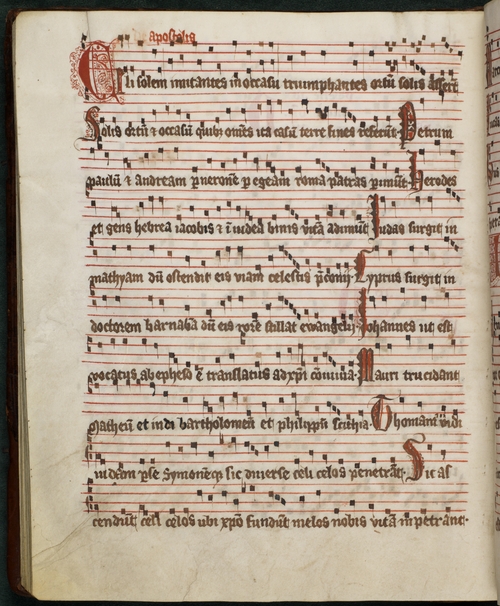 apostolis
Celi solem imitantes in occasu triumphantes ortu solis asserūt
Solis ortū ⁊ occasū quibꝫ omēs ita casū terre fines referūt. Petrum
paulū ⁊ andream p neronē p egeam roma patras pimūt. herodes
et gens hebrea iacobis ⁊ ī iudea binis vitā adimūt. Iudas surgit in
mathyam dū ostendit eis viam celestis
Cyprus surgit in
doctorem barnabā dū eis rore stillat ewangelij. Johannes ut est
vocatus ab epheso ē translatus ad xp̄i cōviuia. Mauri trucidant
Matheū et indi bartholomeū et philippū scithia. Thomam vidi
iudam pse Symonēqꝫ sic diuerse celi celos penetrāt. Sic as
cendūt celi celos ubi xpō fundūt melos nobis vitā impetrant.